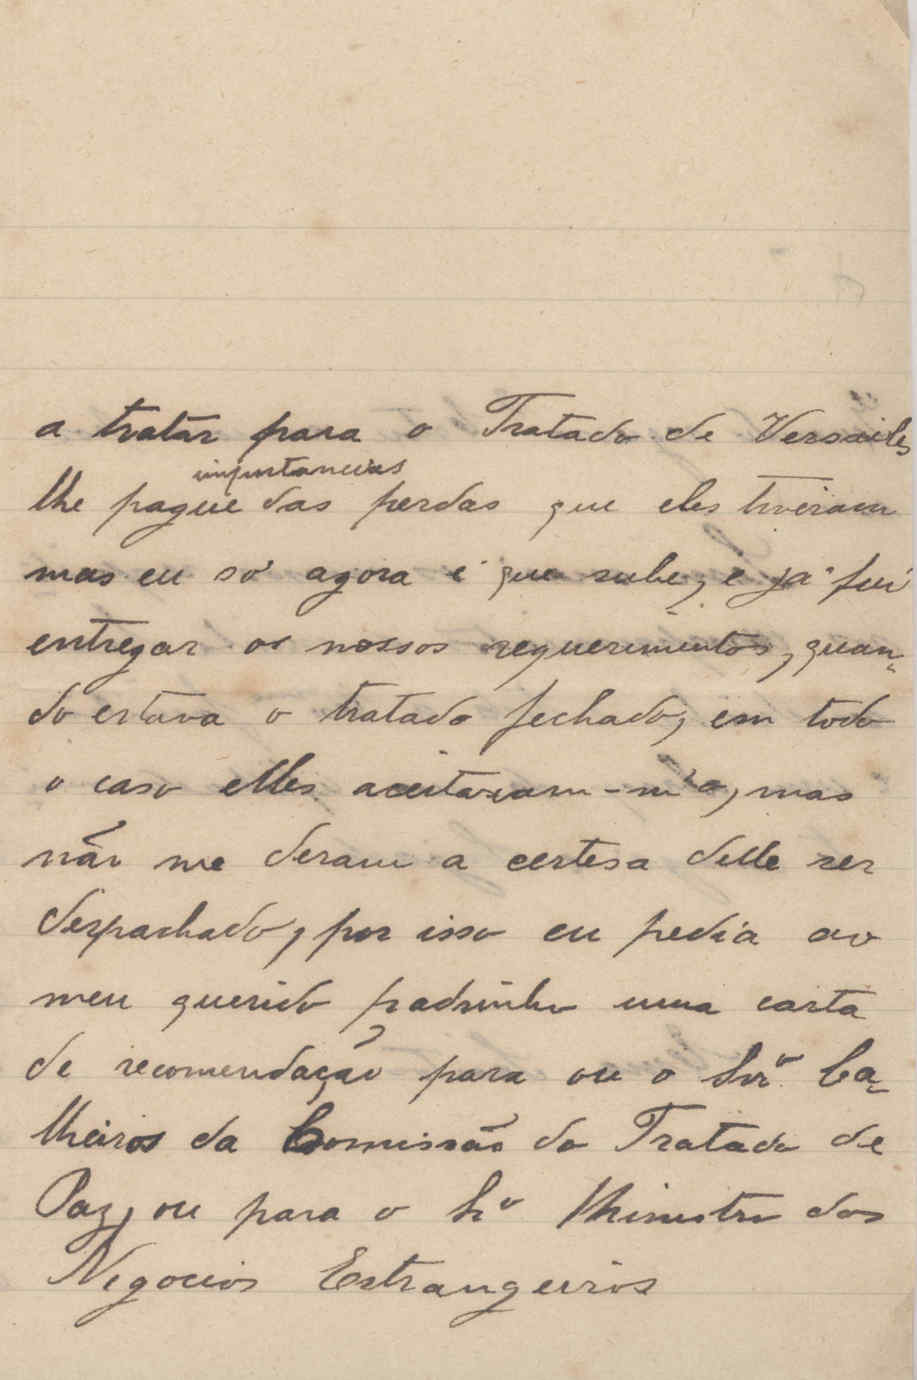 a tratar para o Tratado de Versailes
importancias
lhe pague das perdas que eles tiveram
mas eu só agora é que sube, e já fui
entregar os nossos requerimentos, quan-
do estava o tratado fechado, em todo
o caso elles aceitaram-m'o, mas
não me deram a certesa delle ser
despachado, por isso eu pedia ao
meu querido padrinho uma carta
de recomendação para ou o Snr. Ca-
lheiros da Comissão do Tratado de
Paz, ou para o Sr. Ministro dos
Negocios Estrangeiros